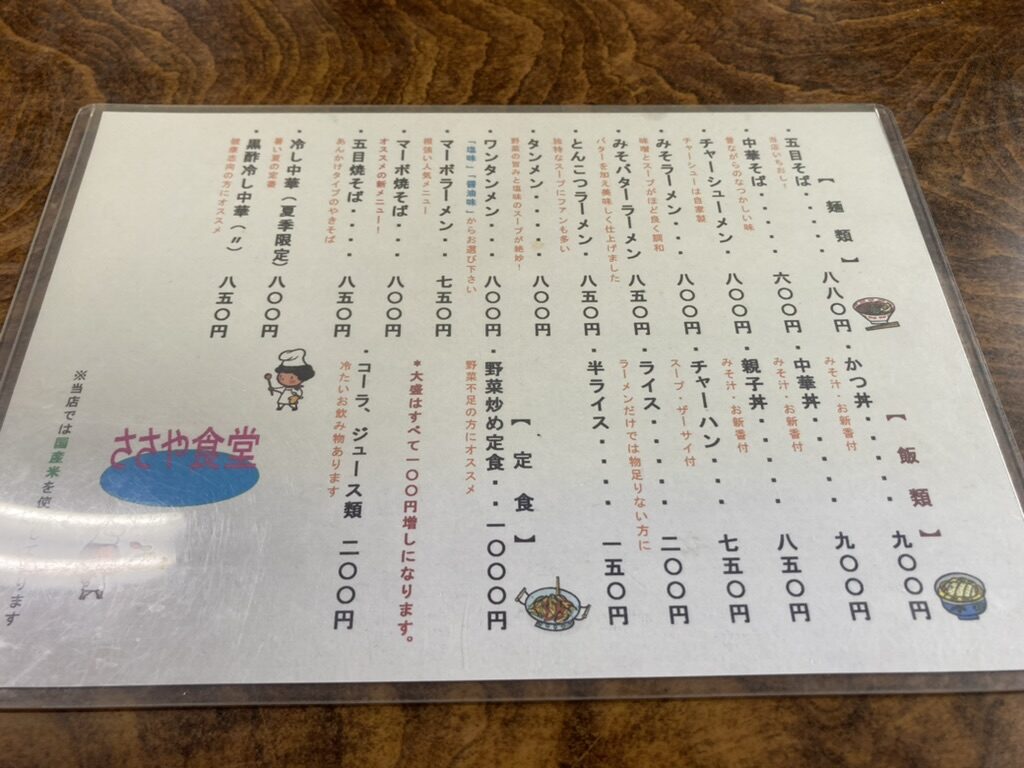 【麺類】
・五目そば・・・・・八八〇円
当店いちおし！
・中華そば・・・・・六〇〇円
昔ながらのなつかしい味
・チャーシューメン・八〇〇円
チャーシューは自家製
・みそラーメン・・・八〇〇円
味噌とスープがほど良く調和
・みそバターラーメン 八五〇円
バターを加え美味しく仕上げました
・とんこつラーメン 八五〇円
独特なスープにファンも多い
・タンメン・・・・・八〇〇円
野菜の旨みと塩味のスープが絶妙！
・ワンタンメン・・・八〇〇円
「塩味」「醤油味」からお選び下さい
・マーボラーメン・・七五〇円
根強い人気メニュー
・マーボ焼そば・・・八〇〇円
オススメの新メニュー！
・五目焼そば・・・・八五〇円
あんかけタイプのやきそば
・冷し中華（夏季限定）八〇〇円
暑い夏の定番
・黒酢冷し中華（〃）八五〇円
健康志向の方にオススメ
【飯類】
・かつ丼・・・・・九〇〇円
みそ汁・お新香付
・中華丼・・・・・九〇〇円
みそ汁・お新香付
・親子丼・・・・・八五〇円
みそ汁・お新香付
・チャーハン・・・七五〇円
スープ・ザーサイ付
・ライス・・・・・二〇〇円
ラーメンだけでは物足りない方に
・半ライス・・・・一五〇円
【定食】
・野菜炒め定食・・一〇〇〇円
野菜不足の方にオススメ
＊大盛はすべて一〇〇円増しになります。
・コーラ、ジュース類 二〇〇円
冷たいお飲み物あります
ささや食堂
※当店では国産米を使
ります